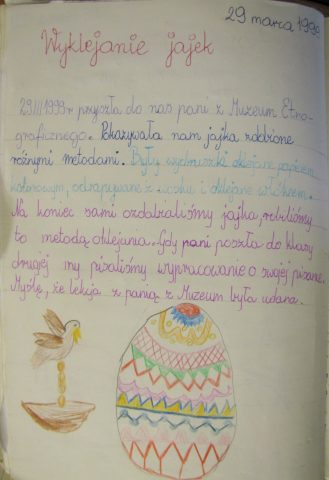 29 marca 1999
Wyklejanie jajek
29III1999r przyszła do nas pani z Muzeum Etno-
graficznego. Pokazywała nam jajka robione
różnymi metodami. Były wydmuszki oklejane papierem
kolorowym, odrapywane z wosku i oklejane włóczkem.
Na koniec sami ozdabialiśmy jajka, robiliśmy
to metodą oklejania. Gdy pani poszła do klasy
drugiej my pisaliśmy wypracowanie o swojej pisance.
Myślę, że lekcja z panią z Muzeum była udana.